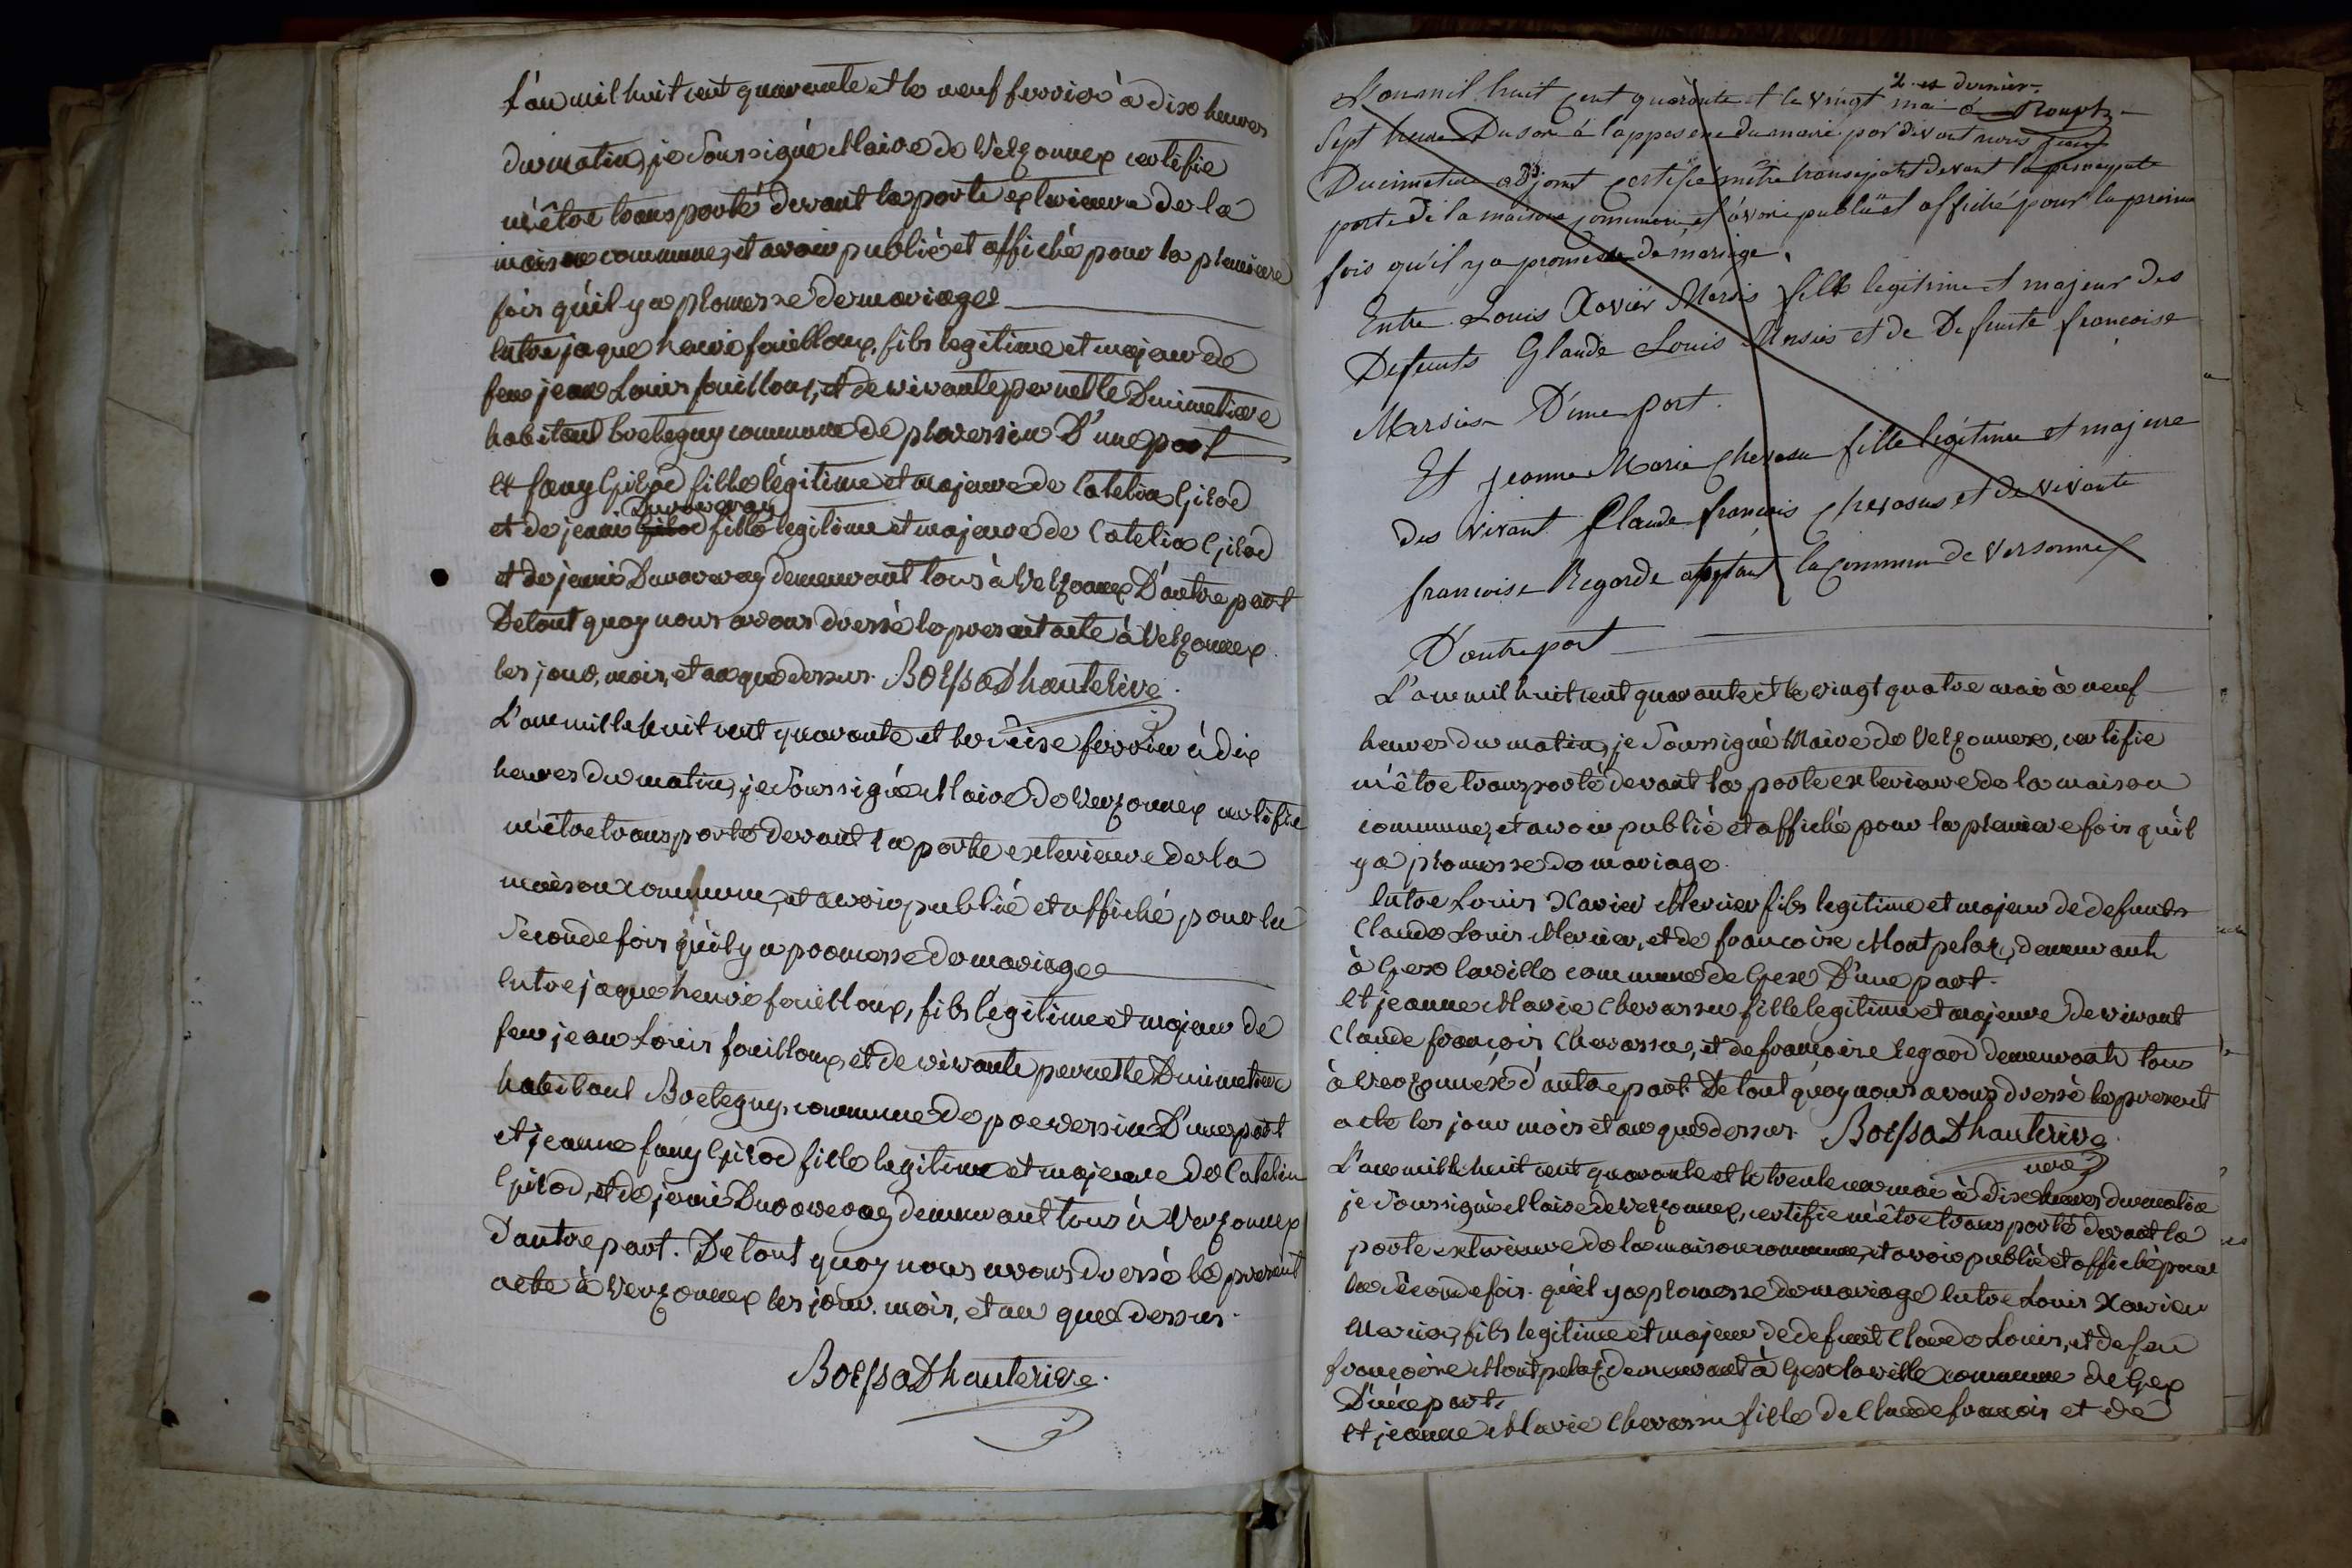 L'an mil huit cent quarante et le neuf fevrier à dix heures
du matin, je soussigné Maire de Vezonnex certifie
m'être transporté devant la porte exterieure de la
maison commune, et avoir publié et affiché pour la premiere
fois qu'il y a promesse de mariage
Entre jaque henri fouilloux, fils legitime et majeur de
feu jean Louis fouilloux, et de vivante pernette Ducimetiere
habitant bretegny commune de prevessin D'une part
et fany Girod fille légitime et majeure de Catelin Girod
Duvaveray
et de jenni Girod fille legitime et majeure de Catelin Girod
et de jenni Duvaveray demeurant tous à Vezonnex D'autre part
De tout quoy nous avons dressé le present acte à Vezonnex
les jour, mois, et an que dessus. BoessaDhauterive
L'an mille huit cent quarante et le seise fevrier à dix
heures du matin, je soussigné Maire de Verzonnex certifie
m'être transporté devant la porte exterieure de la
maison commune, et avoir publié et affiché pour la
seconde fois qu'il y a promesse de mariage
Entre jaque henri fouilloux, fils légitime et majeur de
feu jean Louis fouilloux et de vivante pernette Ducimetiere
habitant Bretegny, commune de prevessin D'une part
et jeanne fany Girod fille legitime et majeure de Catelin
Girod, et de jenni Duvaveray demeurant tous à Verzonnex
D'autre part. De tout quoy nous avons dressé le present
acte à Verzonnex les jour, mois, et an que dessus.
BoessaDhauterive.
L'an mil huit cent quarante et le vingt mai à
Sept heure Du soir à l'apposene du maire par devant nous jean
Ducimetiere adjoint certifié m'être transporté devant la
porte de la maison commune, et avoir publié et affiché pour la premier
fois qu'il y a promesse de mariage.
Entre Louis Xavier Mersis fills legitime et majeur des
Defunts Glaude Louis Mersies et de Defunte francoise
Mersies D'une part.
Et jeanne Marie Chevasu fille légitime et majeure
des vivant Claude françois Chevasus et de vivante
francoise Regarde abytant la commune de Versonnex
D'autre part
L'an mil huit cent quarante et le vingt quatre mai à neuf
heures du matin, je soussigné Maire de Verzonnex, certifie
m'être transporté devant la porte exterieure de la maison
commune, et avoir publié et affiché pour la premiere fois qu'il
y a promesse de mariage.
Entre Louis Xavier Mercier fils legitime et majeur de defunts
Claude Louis Mercier, et de francoise Montpelaz, demeurant
à Gex la ville commune de Gex D'une part.
Et jeanne Marie Chevassu fille legitime et majeure de vivant
Claude françois Chevassu, et de francoise legard demeurant tous
à Verzonnex d'autre part. De tout quoy nous avons dressé le present
acte les jour mois et an que dessus. BoessaDhauterive
L'an mille huit cent quarante et le trente un mai à dix heures du matin
je soussigné Maire de Verzonnex, certifie m'être transporté devant la
porte exterieure de la maison commune, et avoir publié et affiché pour
la seconde fois. qu'il y a promesse de mariage Entre Louis Xavier
Mercier, fils legitime et majeur de defunt Claude Louis, et de feu
francoise Montpelaz demeurant à Gex la ville commune de Gex
D'une part.
Et jeanne Marie Chevassu fille de Claude francois et de